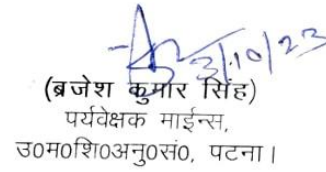 31/10/23
(ब्रजेश कुमार सिंह)
पर्यवेक्षक माईन्स,
उ०म०शि०अनु०सं०, पटना।